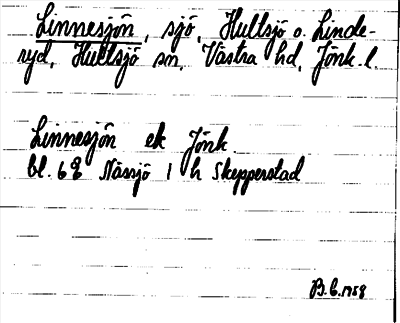 Linnesjön, sjö, Hultsjö o. Linde-
ryd, Hultsjö sn, Västra hd, Jönk. l.
Linnesjön ek Jönk.
bl. 68 Nässjö 1 h Skepperstad
B.C. 1958